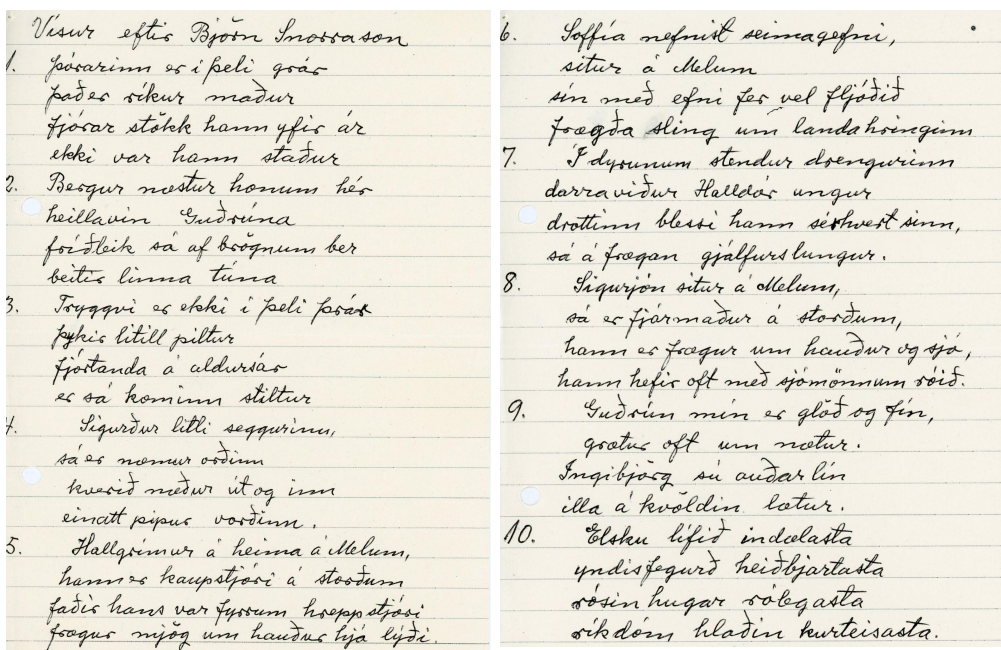 Vísur eftir Björn Snorrason
1. Þórarinn er í þeli grár
það er ríkur maður
fjórar stökk hann yfir ár
ekki var hann staður
2. Bergur næstur honum hér
heillavin Guðrúna
fríðleik sá af brögnum ber
beitir linna túna
3. Tryggvi er ekki í þeli þrár
þykir lítill piltur
fjórtanda á aldursár
er sá kominn stiltur
4. Sigurður litli seggurinn,
sá er næmur orðinn
kverið meður út og inn
einatt pipur vorðinn.
5. Hallgrímur á heima á Melum,
hann er kaupstjóri á storðum
faðir hans var fyrrum hreppstjóri
frægur mjög um hauður hjá lýði.
6. Soffía nefnist seimagefni,
situr á Melum
sín með efni fer vel fljóðið
frægða sling um landahringinn
7. Í dyrunum stendur drengurinn
darraviður Halldór ungur
drottinn blessi hann sérhvert sinn,
sá á frægan gjálfurslungur.
8. Sigurjón situr á Melum,
sá er fjármaður á storðum,
hann er frægur um hauður og sjó,
hann hefir oft með sjómönnum róið.
9. Guðrún mín er glöð og fín,
grætur oft um nætur.
Ingibjörg sú auðarlín
illa á kvöldin lætur.
10. Elsku lífið indælasta
yndisfegurð heiðbjartasta
rósin hugar rólegasta
ríkdóm hlaðin kurteisasta.